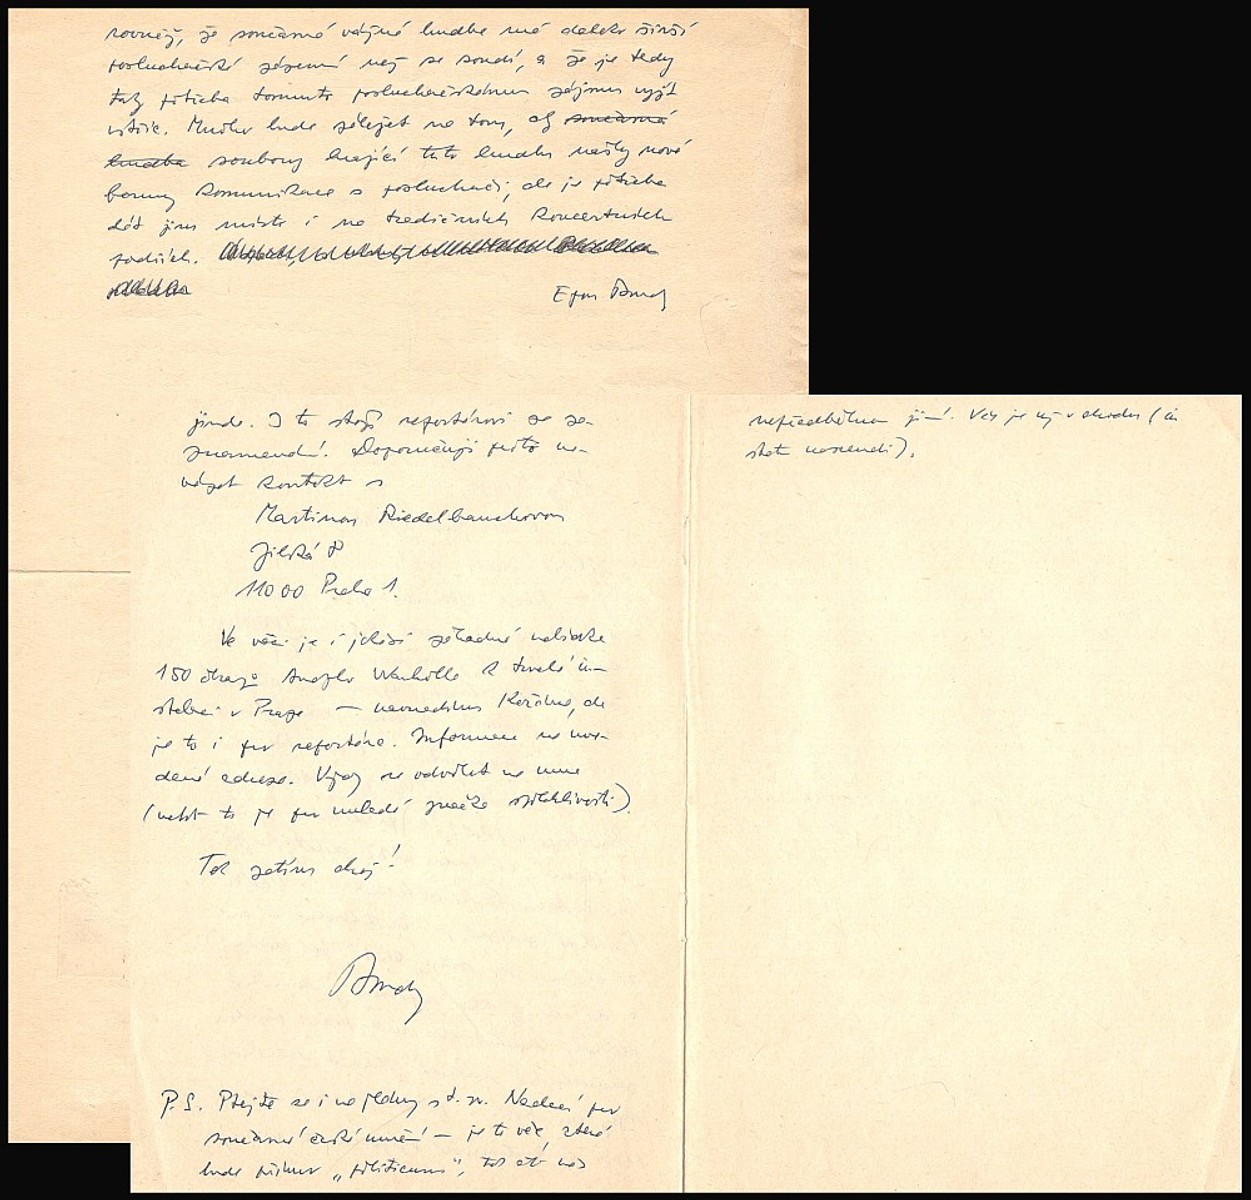 rovněž, že současná vážná hudba má daleko širší
posluchačské zázemí než se soudí, a že je tedy
tak potřeba tomuto posluchačskému zájmu vyjít
vstříc. Mnoho bude záležet na tom, aby současná
hudba soubory hrající tuto hudbu našly nové
formy komunikace s posluchači, ale je potřeba
dát jim místo i na tradičních koncertních
podiích.
Egon Bondy
jinde. I to stojí reportérovi za za-
znamenání. Doporučuji proto na-
vázat kontakt s
Martinou Riedelbauchovou
Jilská 8
11000 Praha 1.
Ve věci je i jakási záhadná nabídka
150 obrazů Andyho Warhola k trvalé in-
stalaci v Praze — ale
je to i pro reportéra. Informace na uve-
dené adrese. se odvolat na mne
(neb to je pro mladé značka spolehlivosti).
Tak zatím ahoj!
Bondy
P.S. Ptejte se i na plány t. zv. Nadace pro
současné české umění — je to věc, která
bude "politicum", tak ať vás
nepředběhnou jiní. Věc je už v chodu (in
statu nascendi).